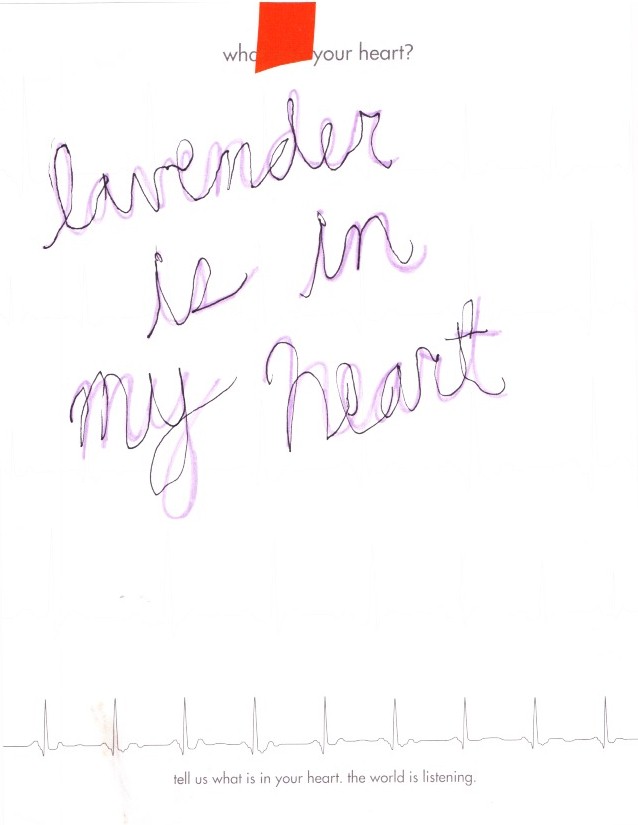 wha your heart?
lavender
is in
my heart
tell us what is in your heart. the world is listening.